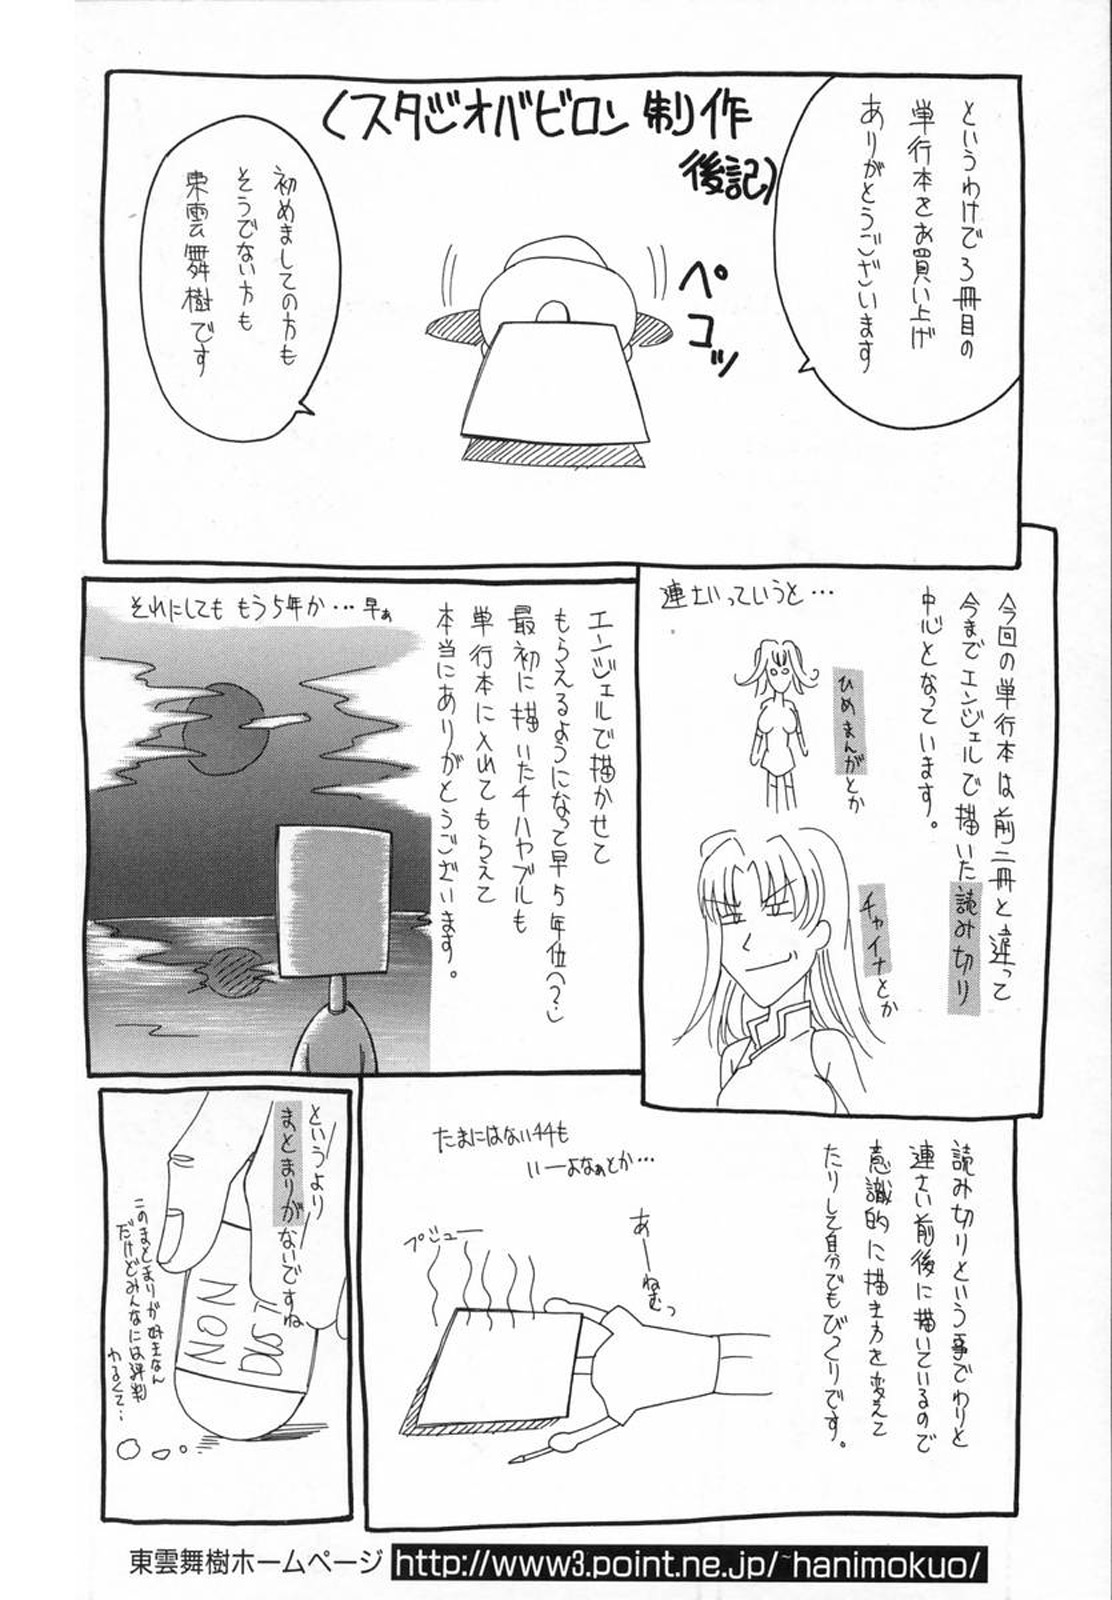 (スタジオバビロン制作
後記)
というわけで3冊目の
単行本をお買い上げ
ありがとうございます
ペコッ
初めましての方も
そうでない方も
東雲舞樹です
今回の単行本は前二冊と違って
今までエンジェルで描いた読み切り
中心となっています。
連さいっていうと…
ひめまんがとか
チャイナとか
エンジェルで描かせて
もらえるようになって早5年位(?)
最初に描いたチハヤブルも
単行本に入れてもらえて
本当にありがとうございます。
それにしても もう5年か…早ぁ
読み切りという事でわりと
連さい前後に描いているので
意識的に描き方を変えて
たりして自分でもびっくりです。
たまにはない44も
いーよなぁとか…
あーねむっ
プシュー
というより
まとまりがないですね
このまとまりが好きなん
だけどみんなには評判
わるくて…
NON
DUST
東雲舞樹ホームページ http://www3.point.ne.jp/~hanimokuo/